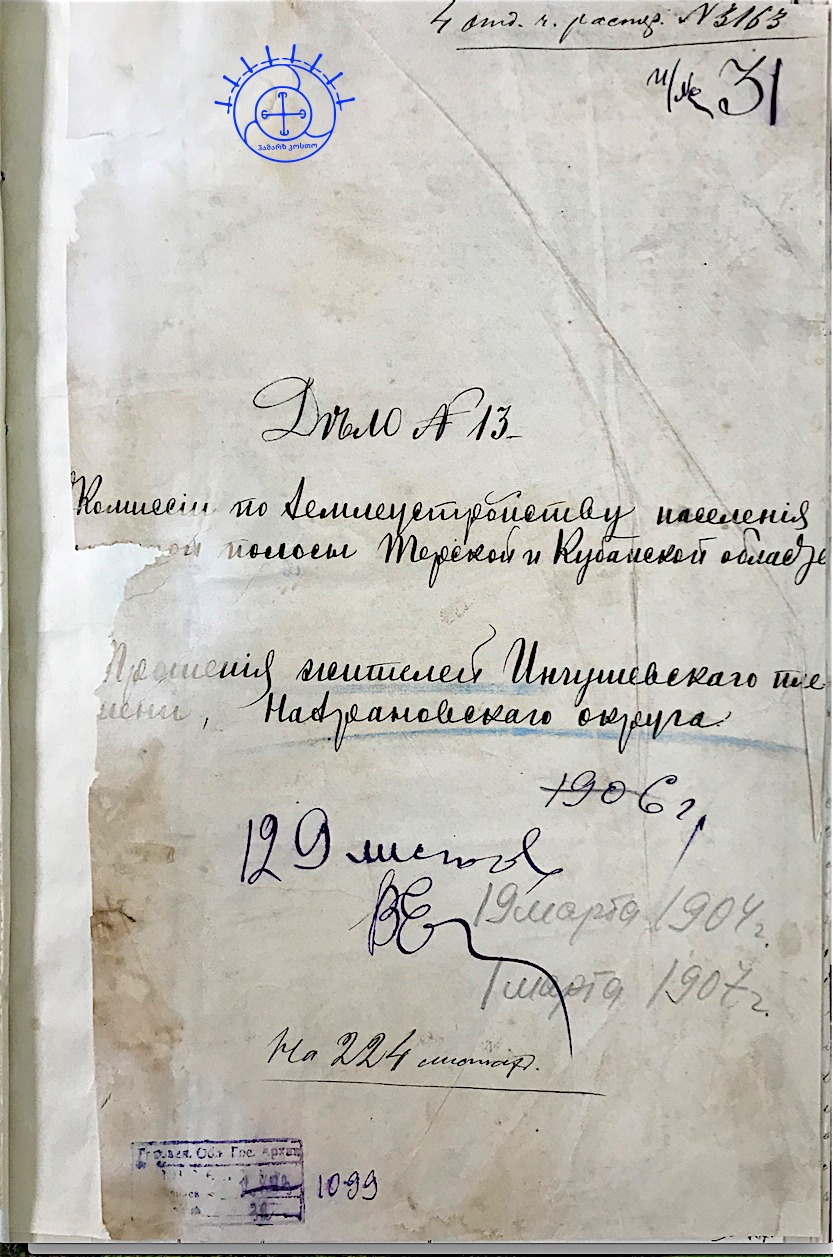 4 отд. ч. распор. №3163
и/№ 31
ჰამარზ კოსთო
Дѣло № 13
Комиссіи по землеустройству населенія
полосы Терской и Кубанской областе
Прошенія жителей Ингушевскаго пле
мени, Назрановскаго округа
1906 г.
129 листов
19 марта 1904 г.
1 марта 1907 г.
На 224 листах.
Обл. Гос. Архив
1099